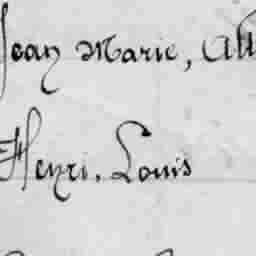 Jean Marie, Al
Henri. Louis